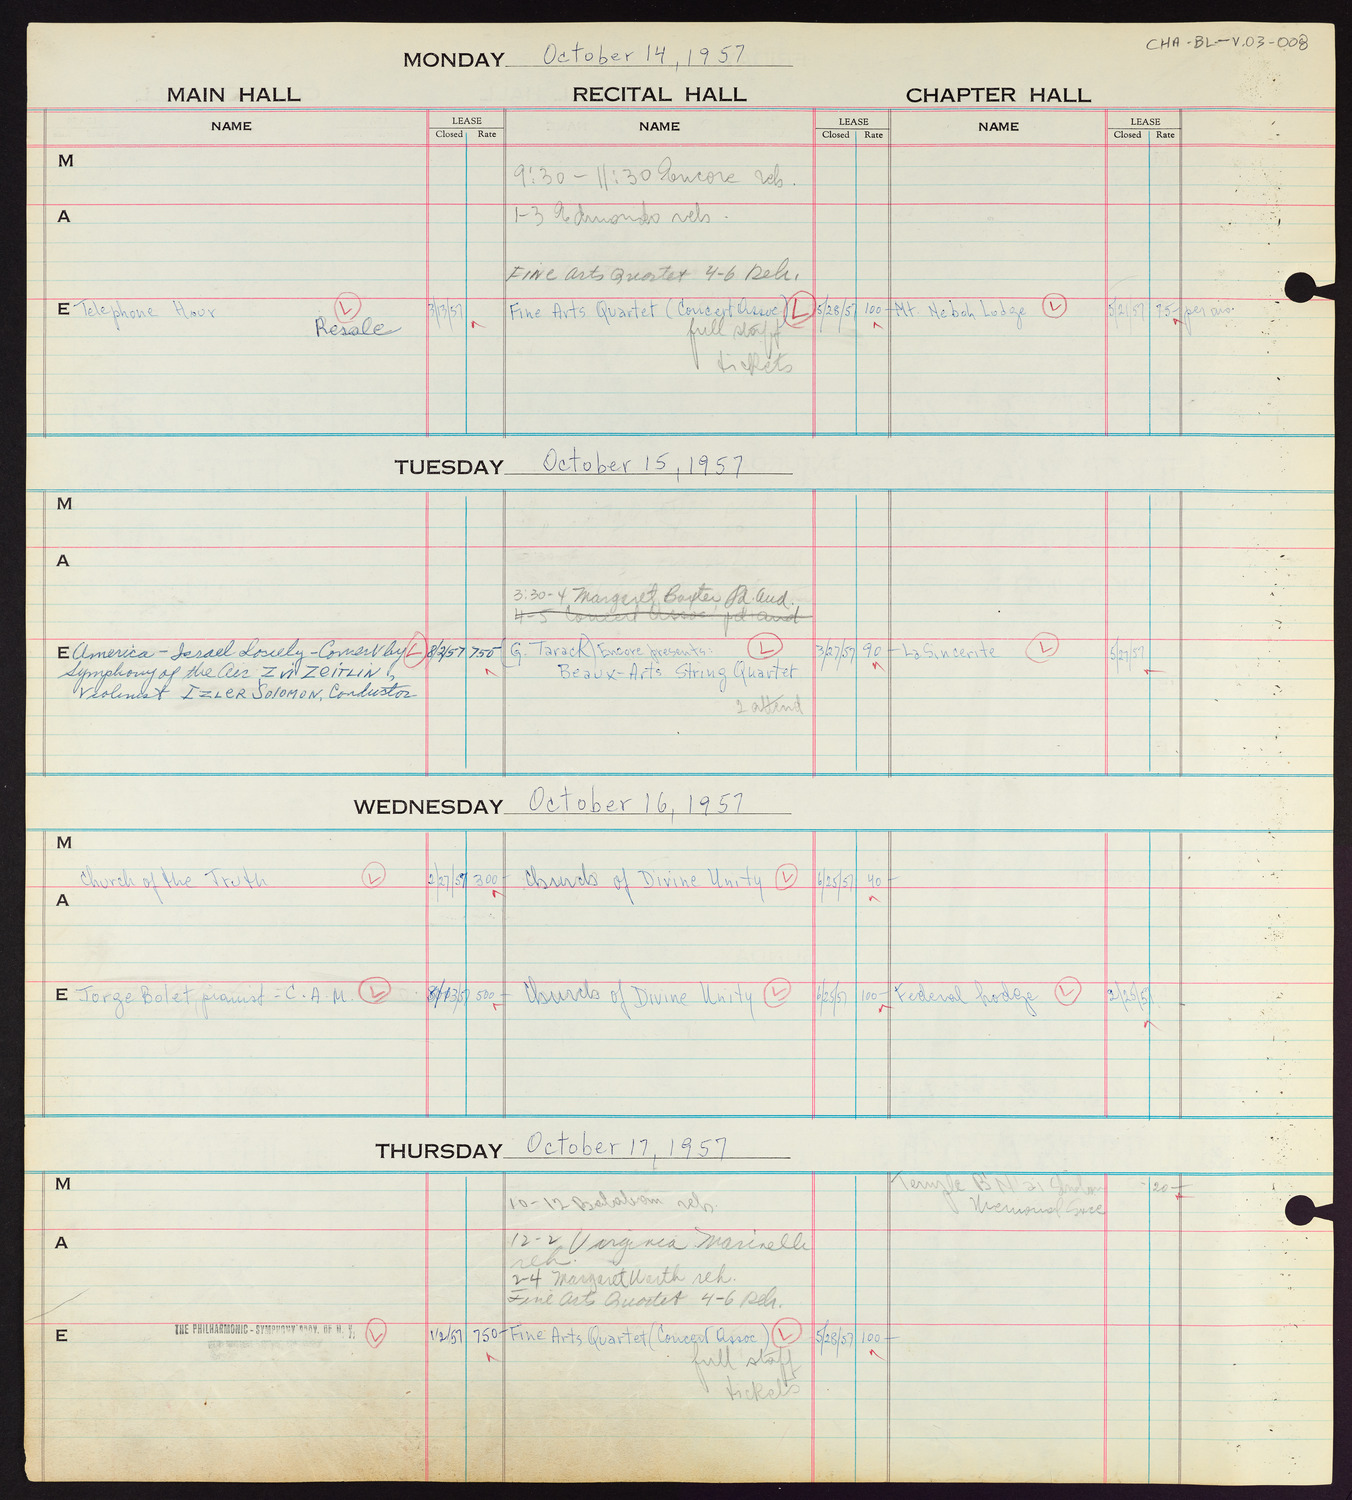 CHA-BL-V.03-008
MONDAY October 14, 1957
MAIN HALL RECITAL HALL CHAPTER HALL
NAME LEASE Closed Rate NAME LEASE Closed Rate NAME LEASE Closed Rate
M
9:30 - 11:30 Encore reh.
A
1-3 Edmondo reh.
Fine Arts Quartet 4-6 Reh.
E Telephone Hour L 3/13/57 Fine Arts Quartet (Concert Assoc) L 5/28/57 100- Mt. Neboh Lodge L 5/21/57 75- per an.
Resale full staff
tickets
TUESDAY October 15, 1957
M
A
3:30-4 Margaret Baxter Pd. aud.
4-5 Concert Assoc pd aud
E America-Israel Society-Concert by L 8/2/57 750- (G. Tarack) Encore presents: L 3/27/57 90- La Sincerite L 5/27/57
Symphony of the Air ZVI ZEITLIN, Beaux-Arts String Quartet
Violinist IZLER SOLOMON, Conductor
2 attend
WEDNESDAY October 16, 1957
M
Church of the Truth L 2/27/57 300- Church of Divine Unity L 6/25/57 40-
A
E Jorge Bolet, pianist - C.A.M. L 500- Church of Divine Unity L 6/25/57 100- Federal Lodge L 2/25/57
THURSDAY October 17, 1957
M Temple B'N 20-
10-12 reh. Memorial
A 12-2 Virginia Marinelli
reh.
2-4 Margaret Werth reh.
Fine Arts Quartet 4-6 Reh.
E THE PHILHARMONIC-SYMPHONY SOCY. OF N. Y. L 1/2/57 750- Fine Arts Quartet (Concert Assoc) L 5/28/57 100-
full staff
tickets